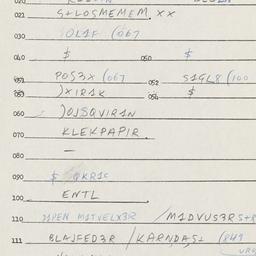 021 S+LOSMEMEM. XX
030 OL1F (067
040 $ 050 $
051 POS3X (067 052 S1GL8 (100
053 )X1R1K 054 $
060 )OJSQVIR1N
070 KLEKPAPIR.
080 —
090 $ QKR1C
100 ENTL
110 M1TVELX3R /M1DVUS3RS+8
111 BLAJFED3R /KARNDAS+ (849